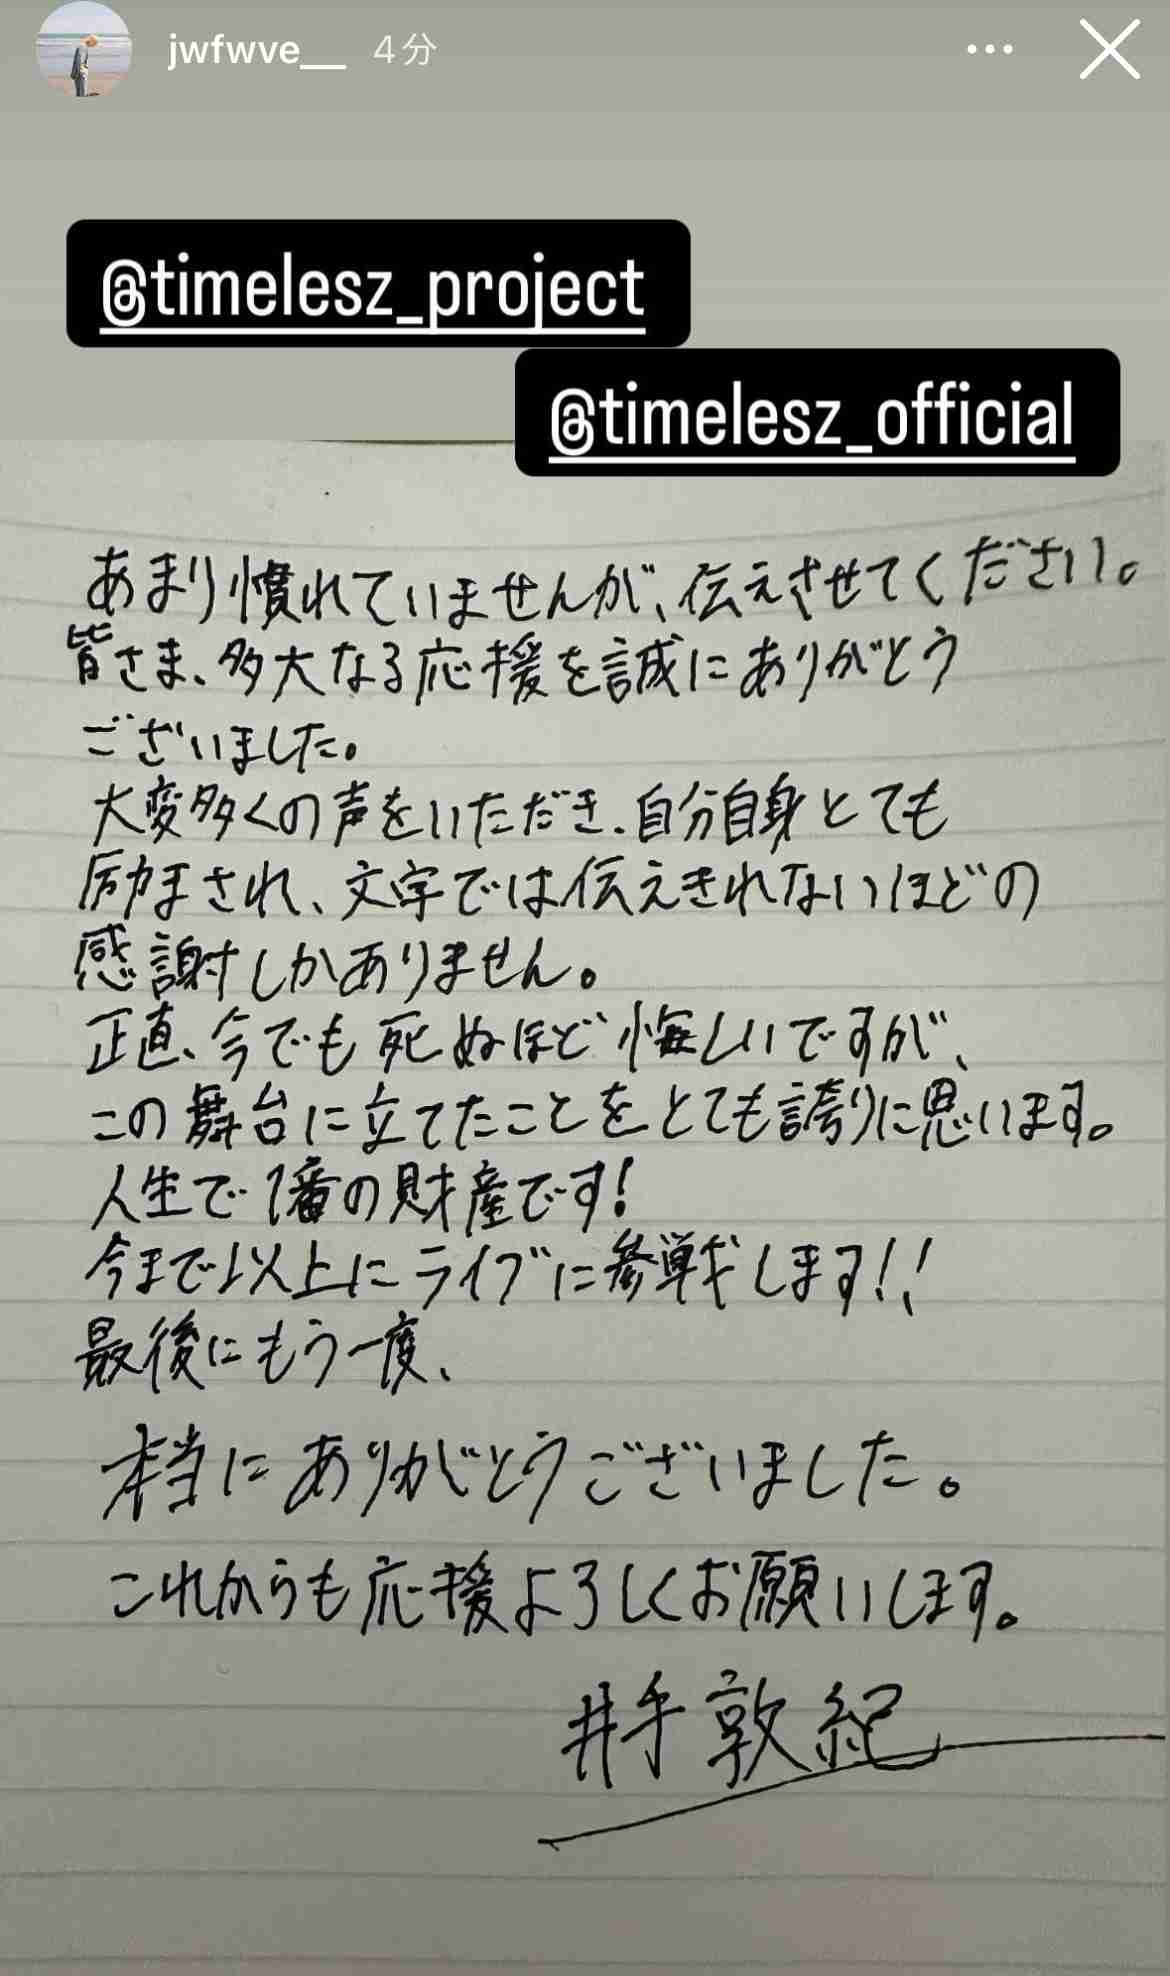 jwfwve__ 4分
@timelesz_project
@timelesz_official
あまり慣れていませんが、伝えさせてください。
皆さま、多大なる応援を誠にありがとう
ございました。
大変多くの声をいただき、自分自身とても
励まされ、文字では伝えきれないほどの
感謝しかありません。
正直、今でも死ぬほど悔しいですが、
この舞台に立てたことをとても誇りに思います。
人生で1番の財産です!
今まで以上にライブに参戦します!!
最後にもう一度、
本当にありがとうございました。
これからも応援よろしくお願いします。
井手敦紀